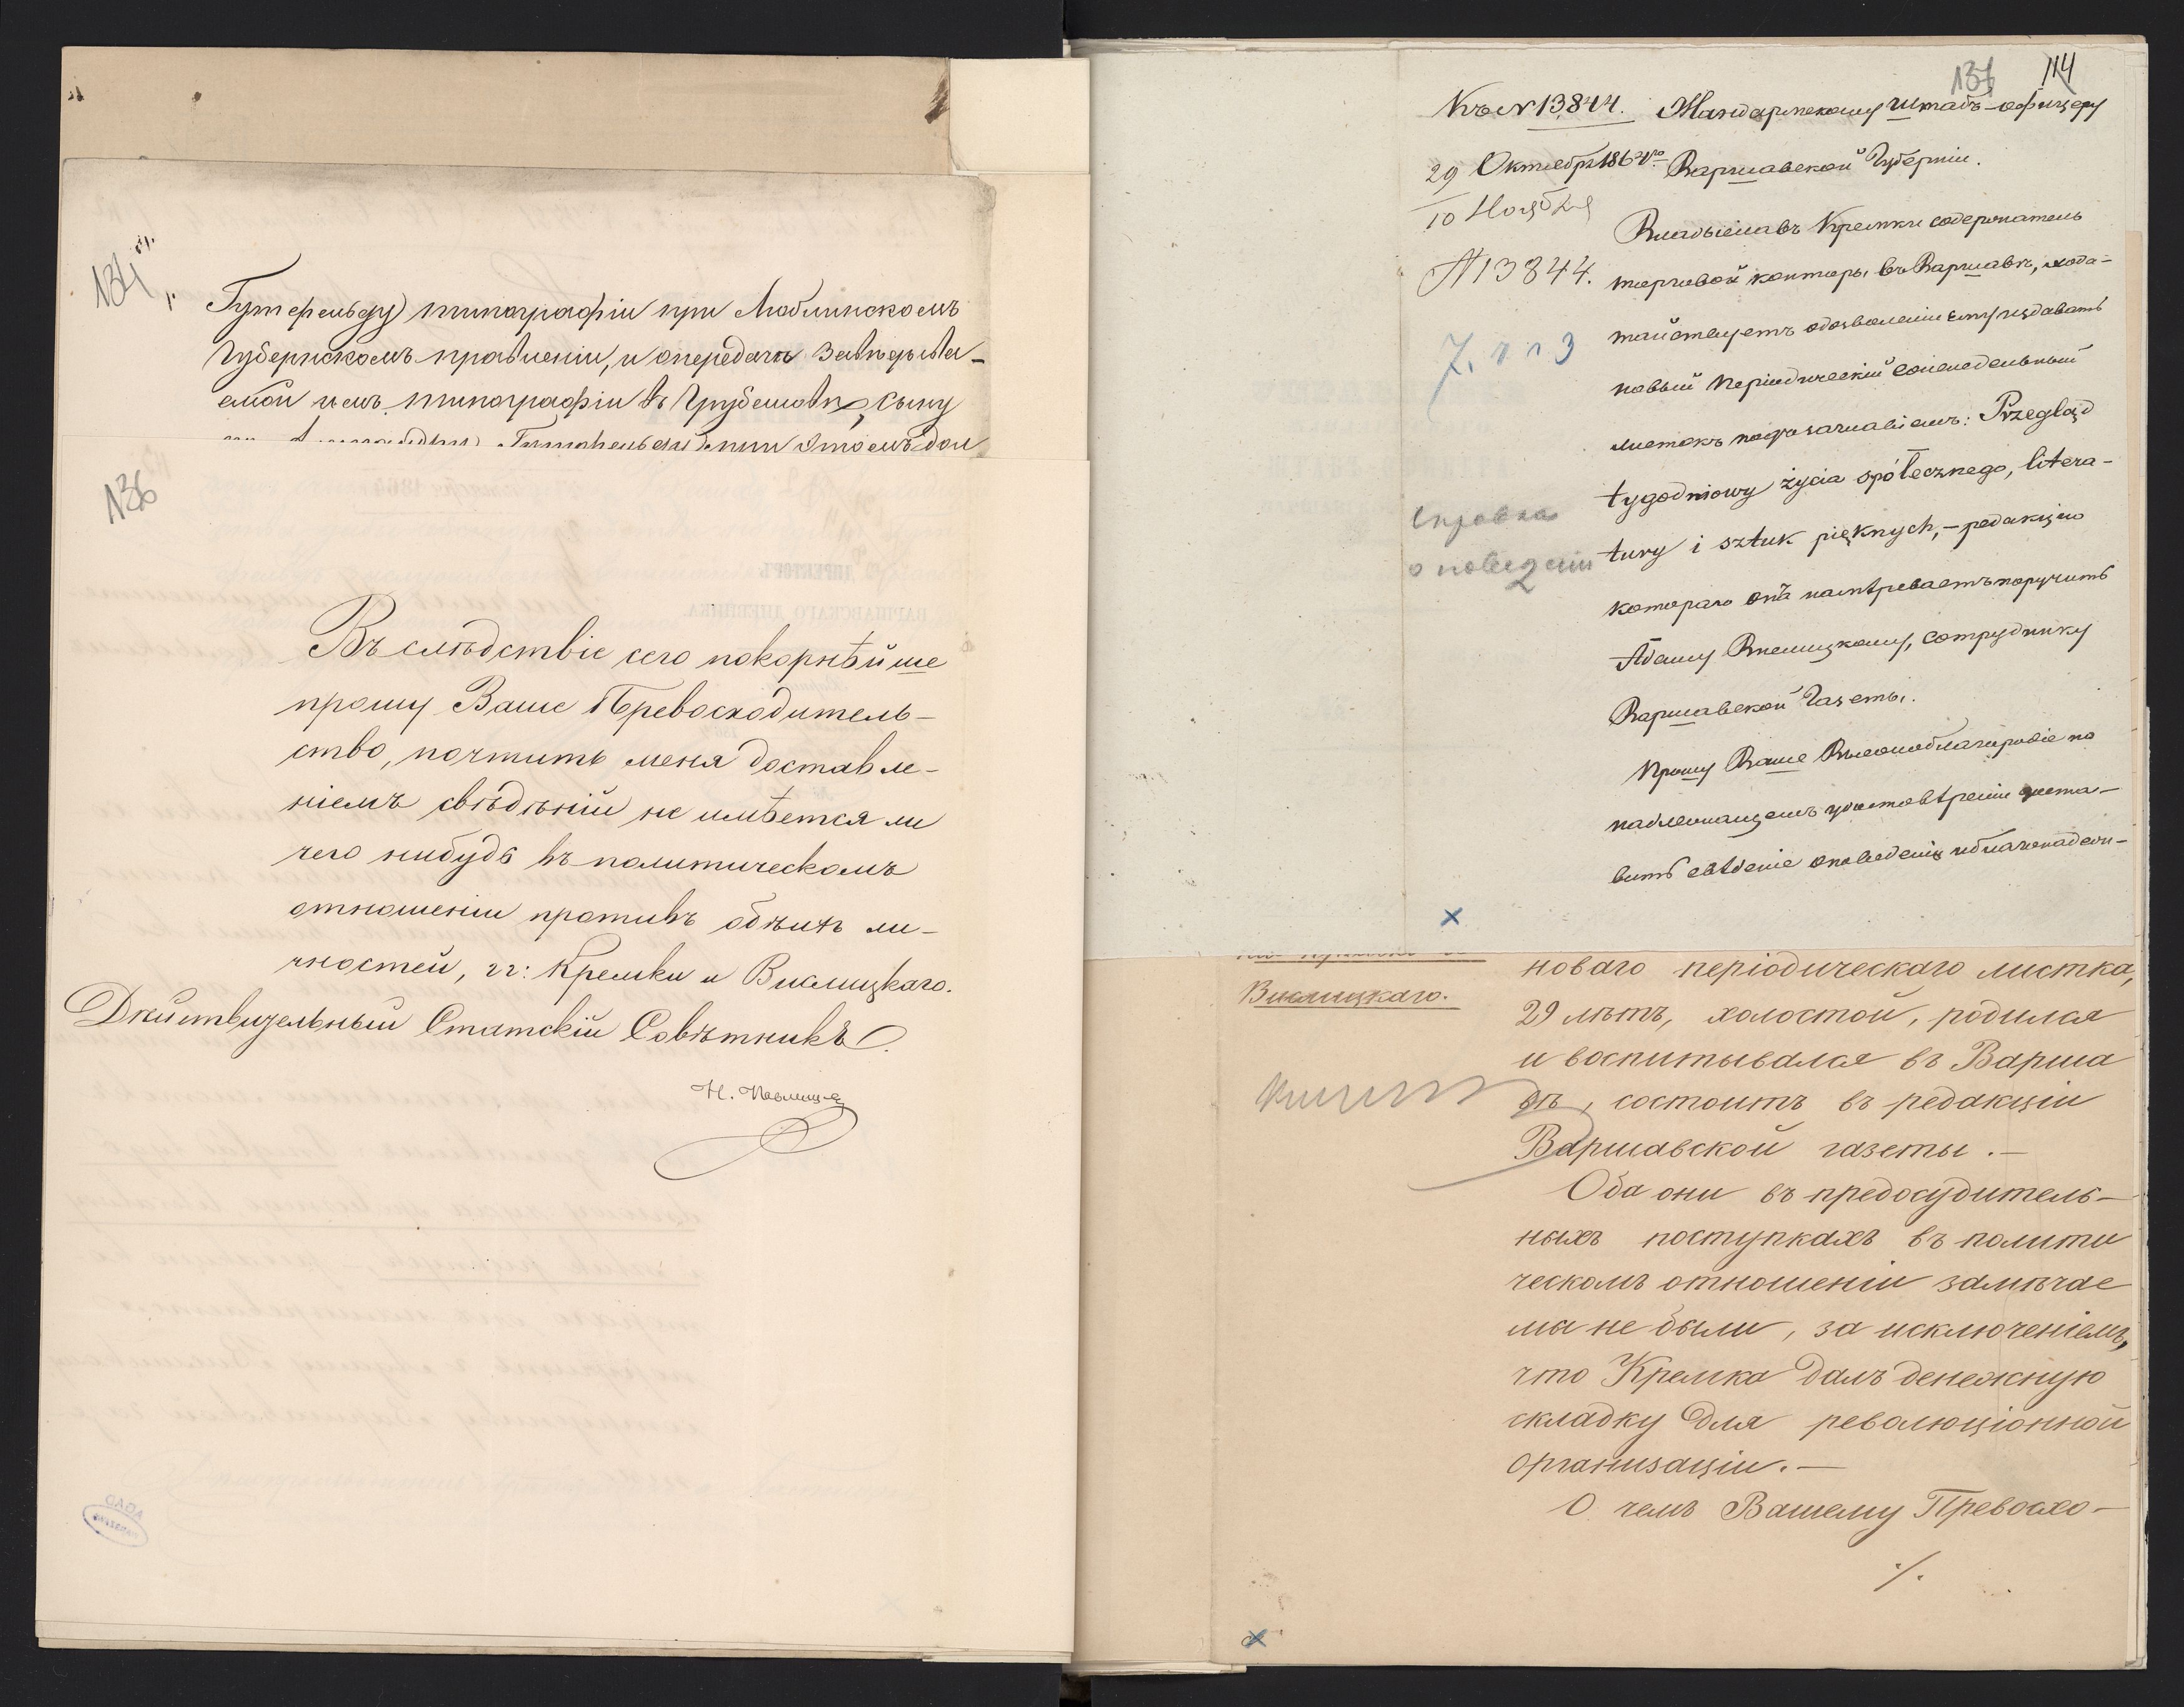 134
Гутерельду) типографіи при Люблинскомъ
Губернскомъ правленіи, и опередачѣ Завѣдыва-
емой имъ типографіи въ Грубешовѣ, сыну
136
Въ слѣдствіе сего покорнѣйше
прошу Ваше Превосходитель-
ство, почтить меня доставле-
ніемъ свѣдѣній не имѣется ли
чего нибудь въ политическомъ
отношеніи противъ обѣихъ ли-
чностей, гг: Кремки и Вислицкаго.
Дѣйствительный Статскій Совѣтникъ
Н. Павлищ
137 114
Къ № 13,844. Жандармскому штабъ-офицеру
29 Октября 186 Варшавской Губерніи.
10 Ноября
№ 13844.
Владыславъ Кремки содержатель
торговой конторы въ Варшавѣ, хода-
тайствуетъ одозволеніи ему издавать
новый періодическій еженедельный
листокъ подъ заглавіемъ: Przegląd
tygodniowy życia społecznego, litera-
tury i sztuk pięknych,- редакцію
котораго онъ намѣреваетъ поручить
Адаму Вислицкому, сотруднику
Варшавской Газеты.
Прошу Ваше Высокоблагородіе по
надлежащемъ удостовѣреніи доста-
вить свѣденіе оповеденіи иблагонадежн-
Справка
о поведеніи
Вислицкаго.
новаго періодическаго листка,
29 лѣтъ, холостой, родился
и воспитывался въ Варша
вѣ, состоитъ въ редакціи
Варшавской газеты.-
Оба они въ предосудитель-
ныхъ поступкахъ въ полити
ческомъ отношеніи замѣчае
мы не были, за исключеніемъ,
что Кремка далъ денежную
складку для революціонной
организаціи.-
О чемъ Вашему Превосхо-
./.